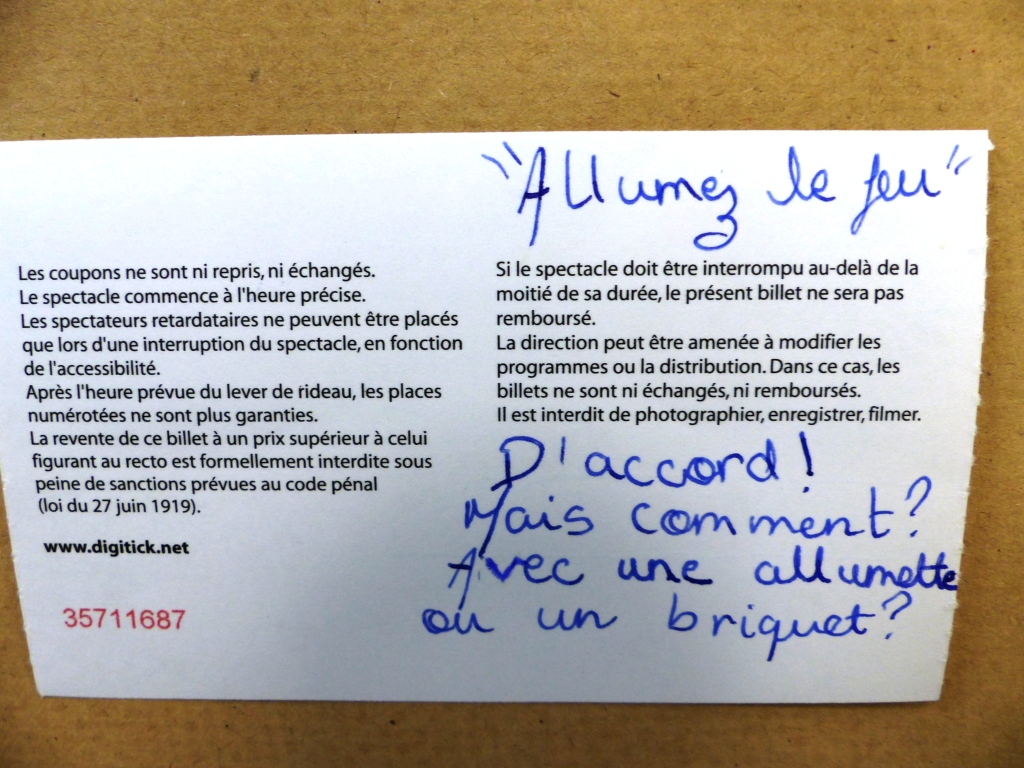 "Allumez le feu"
Les coupons ne sont ni repris, ni échangés.
Le spectacle commence à l'heure précise.
Les spectateurs retardataires ne peuvent être placés
que lors d'une interruption du spectacle, en fonction
de l'accessibilité.
Après l'heure prévue du lever de rideau, les places
numérotées ne sont plus garanties.
La revente de ce billet à un prix supérieur à celui
figurant au recto est formellement interdite sous
peine de sanctions prévues au code pénal
(loi du 27 juin 1919).
www.digitick.net
35711687
Si le spectacle doit être interrompu au-delà de la
moitié de sa durée, le présent billet ne sera pas
remboursé.
La direction peut être amenée à modifier les
programmes ou la distribution. Dans ce cas, les
billets ne sont ni échangés, ni remboursés.
Il est interdit de photographier, enregistrer, filmer.
D'accord!
Mais comment?
Avec une allumette
ou un briquet?